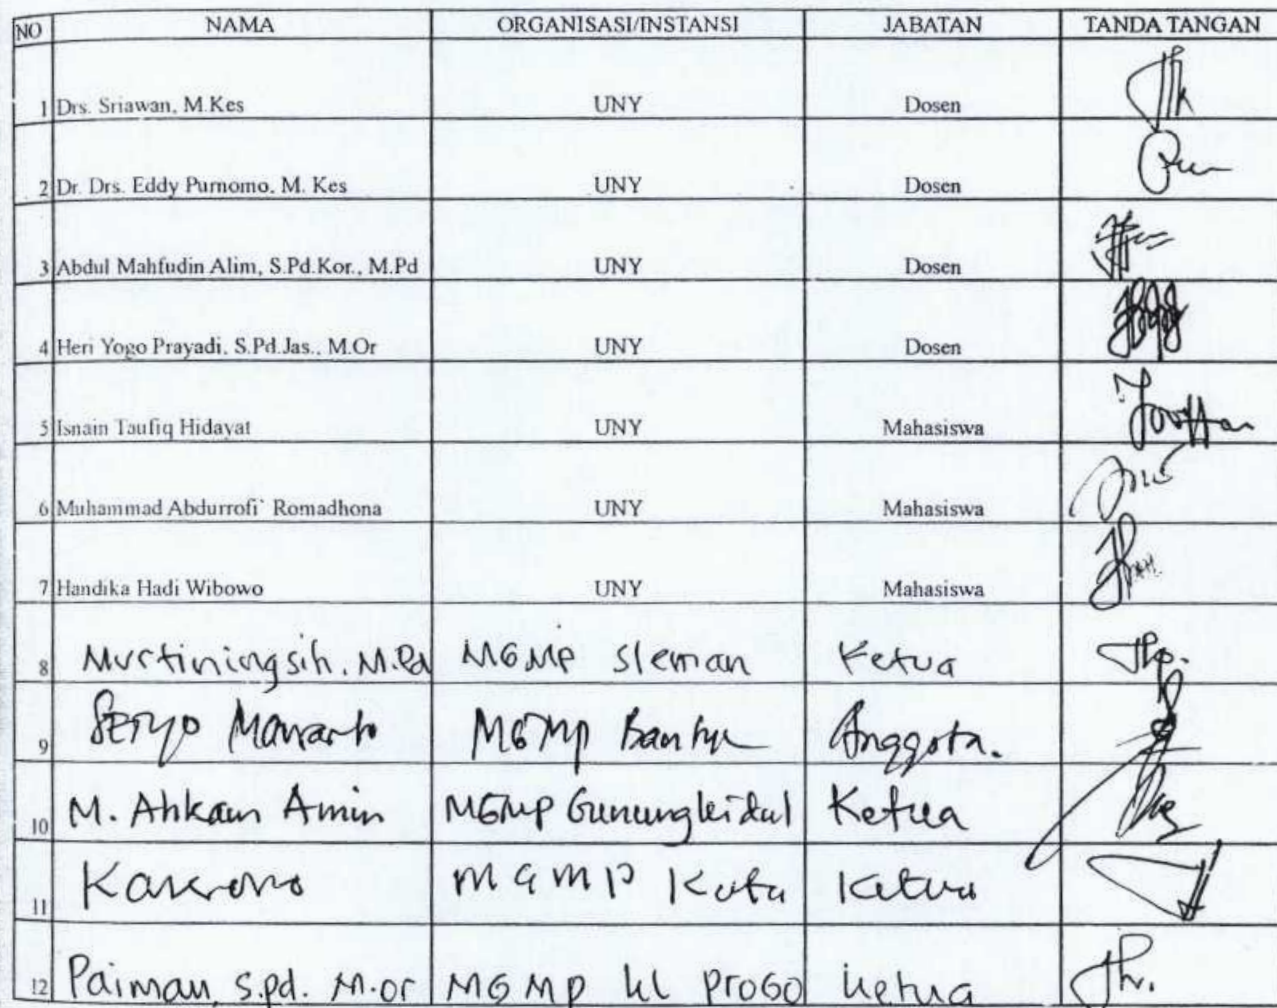 NO NAMA ORGANISASI/INSTANSI JABATAN TANDA TANGAN
1 Drs. Sriawan, M.Kes UNY Dosen
2 Dr. Drs. Eddy Purnomo, M. Kes UNY Dosen
3 Abdul Mahfudin Alim, S.Pd.Kor., M.Pd UNY Dosen
4 Heri Yogo Prayadi, S.Pd.Jas., M.Or UNY Dosen
5 Isnain Taufiq Hidayat UNY Mahasiswa
6 Muhammad Abdurrofi` Romadhona UNY Mahasiswa
7 Handika Hadi Wibowo UNY Mahasiswa
8 Murtiningsih. M.Pd MGMP Sleman Ketua
9 MGMP Bantul Anggota.
10 M. Ahkam Amin MGMP Gunungkidul Ketua
11 MGMP Kota Ketua
12 Paiman, S.pd. M.or MGMP kl PROGO ketua